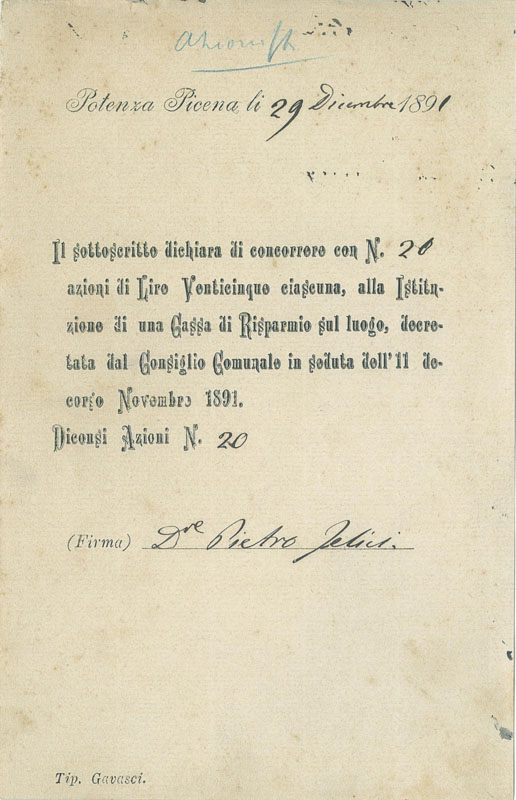 Azionisti
Potenza Picena li 29 Dicembre 1891
Il sottoscritto dichiara di concorrere con N. 20
azioni di Lire Venticinque ciascuna, alla Istitu-
zione di una Cassa di Risparmio sul luogo, decre-
tata dal Consiglio Comunale in seduta dell' 11 de-
corso Novembre 1891.
Diconsi Azioni N. 20
(Firma) Dre Pietro Felici.
Tip. Gavasci.